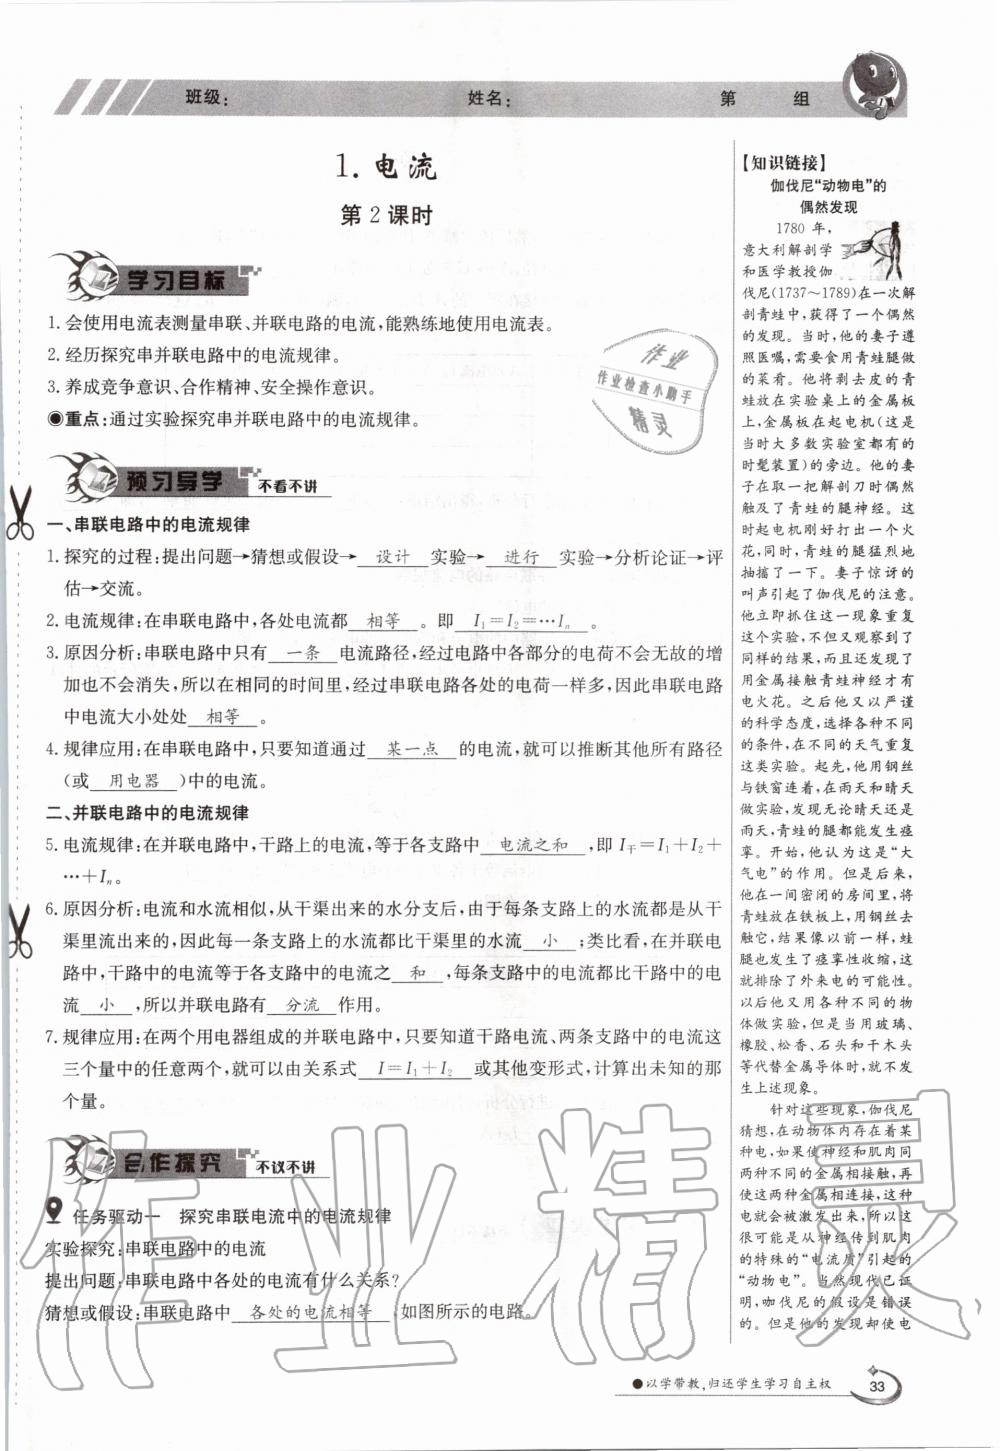 班级：
姓名：
第 组
1. 电流
第 2 课时
学习目标
1. 会使用电流表测量串联、并联电路的电流,能熟练地使用电流表。
2. 经历探究串并联电路中的电流规律。
3. 养成竞争意识、合作精神、安全操作意识。
◉重点:通过实验探究串并联电路中的电流规律。
预习导学 不看不讲
一、串联电路中的电流规律
1. 探究的过程:提出问题→猜想或假设→ 设计 实验→ 进行 实验→分析论证→评
估→交流。
2. 电流规律:在串联电路中,各处电流都 相等 。即 I₁=I₂=…Iₙ 。
3. 原因分析:串联电路中只有 一条 电流路径,经过电路中各部分的电荷不会无故的增
加也不会消失,所以在相同的时间里,经过串联电路各处的电荷一样多,因此串联电路
中电流大小处处 相等 。
4. 规律应用:在串联电路中,只要知道通过 某一点 的电流,就可以推断其他所有路径
(或 用电器 )中的电流。
二、并联电路中的电流规律
5. 电流规律:在并联电路中,干路上的电流,等于各支路中 电流之和 ,即 I干=I₁+I₂+
…+Iₙ。
6. 原因分析:电流和水流相似,从干渠出来的水分支后,由于每条支路上的水流都是从干
渠里流出来的,因此每一条支路上的水流都比干渠里的水流 小 ;类比看,在并联电
路中,干路中的电流等于各支路中的电流之 和 ,每条支路中的电流都比干路中的电
流 小 ,所以并联电路有 分流 作用。
7. 规律应用:在两个用电器组成的并联电路中,只要知道干路电流、两条支路中的电流这
三个量中的任意两个,就可以由关系式 I=I₁+I₂ 或其他变形式,计算出未知的那
个量。
合作探究 不议不讲
任务驱动一 探究串联电流中的电流规律
实验探究:串联电路中的电流
提出问题:串联电路中各处的电流有什么关系?
猜想或假设:串联电路中 各处的电流相等 ,如图所示的电路。
【知识链接】
伽伐尼“动物电”的
偶然发现
1780 年,
意大利解剖学
和医学教授伽
伐尼(1737～1789)在一次解
剖青蛙中,获得了一个偶然
的发现。当时,他的妻子遵
照医嘱,需要食用青蛙腿做
的菜肴。他将剥去皮的青
蛙放在实验桌上的金属板
上,金属板在起电机(这是
当时大多数实验室都有的
时髦装置)的旁边。他的妻
子在取一把解剖刀时偶然
触及了青蛙的腿神经。这
时起电机刚好打出一个火
花,同时,青蛙的腿猛烈地
抽搐了一下。妻子惊讶的
叫声引起了伽伐尼的注意。
他立即抓住这一现象重复
这个实验,不但又观察到了
同样的结果,而且还发现了
用金属接触青蛙神经才有
电火花。之后他又以严谨
的科学态度,选择各种不同
的条件,在不同的天气重复
这类实验。起先,他用铜丝
与铁窗连着,在雨天和晴天
做实验,发现无论晴天还是
雨天,青蛙的腿都能发生痉
挛。开始,他认为这是“大
气电”的作用。但是后来,
他在一间密闭的房间里,将
青蛙放在铁板上,用铜丝去
触它,结果像以前一样,蛙
腿也发生了痉挛性收缩,这
就排除了外来电的可能性。
以后他又用各种不同的物
体做实验,但是当用玻璃、
橡胶、松香、石头和干木头
等代替金属导体时,就不发
生上述现象。
针对这些现象,伽伐尼
猜想,在动物体内存在着某
种电,如果使神经和肌肉同
两种不同的金属相接触,再
使这两种金属相连接,这种
电就会被激发出来,所以这
很可能是从神经传到肌肉
的特殊的“电流质”引起的
“动物电”。当然现代已证
明,咖伐尼的假设是错误
的。但是他的发现却使电
●以学带教,归还学生学习自主权
33
作业
作业检查小助手
精灵
作业精灵